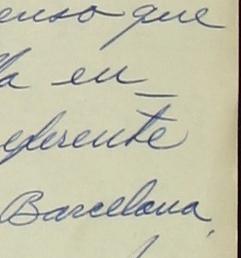 enso que
la en_
eferente
Barcelona,